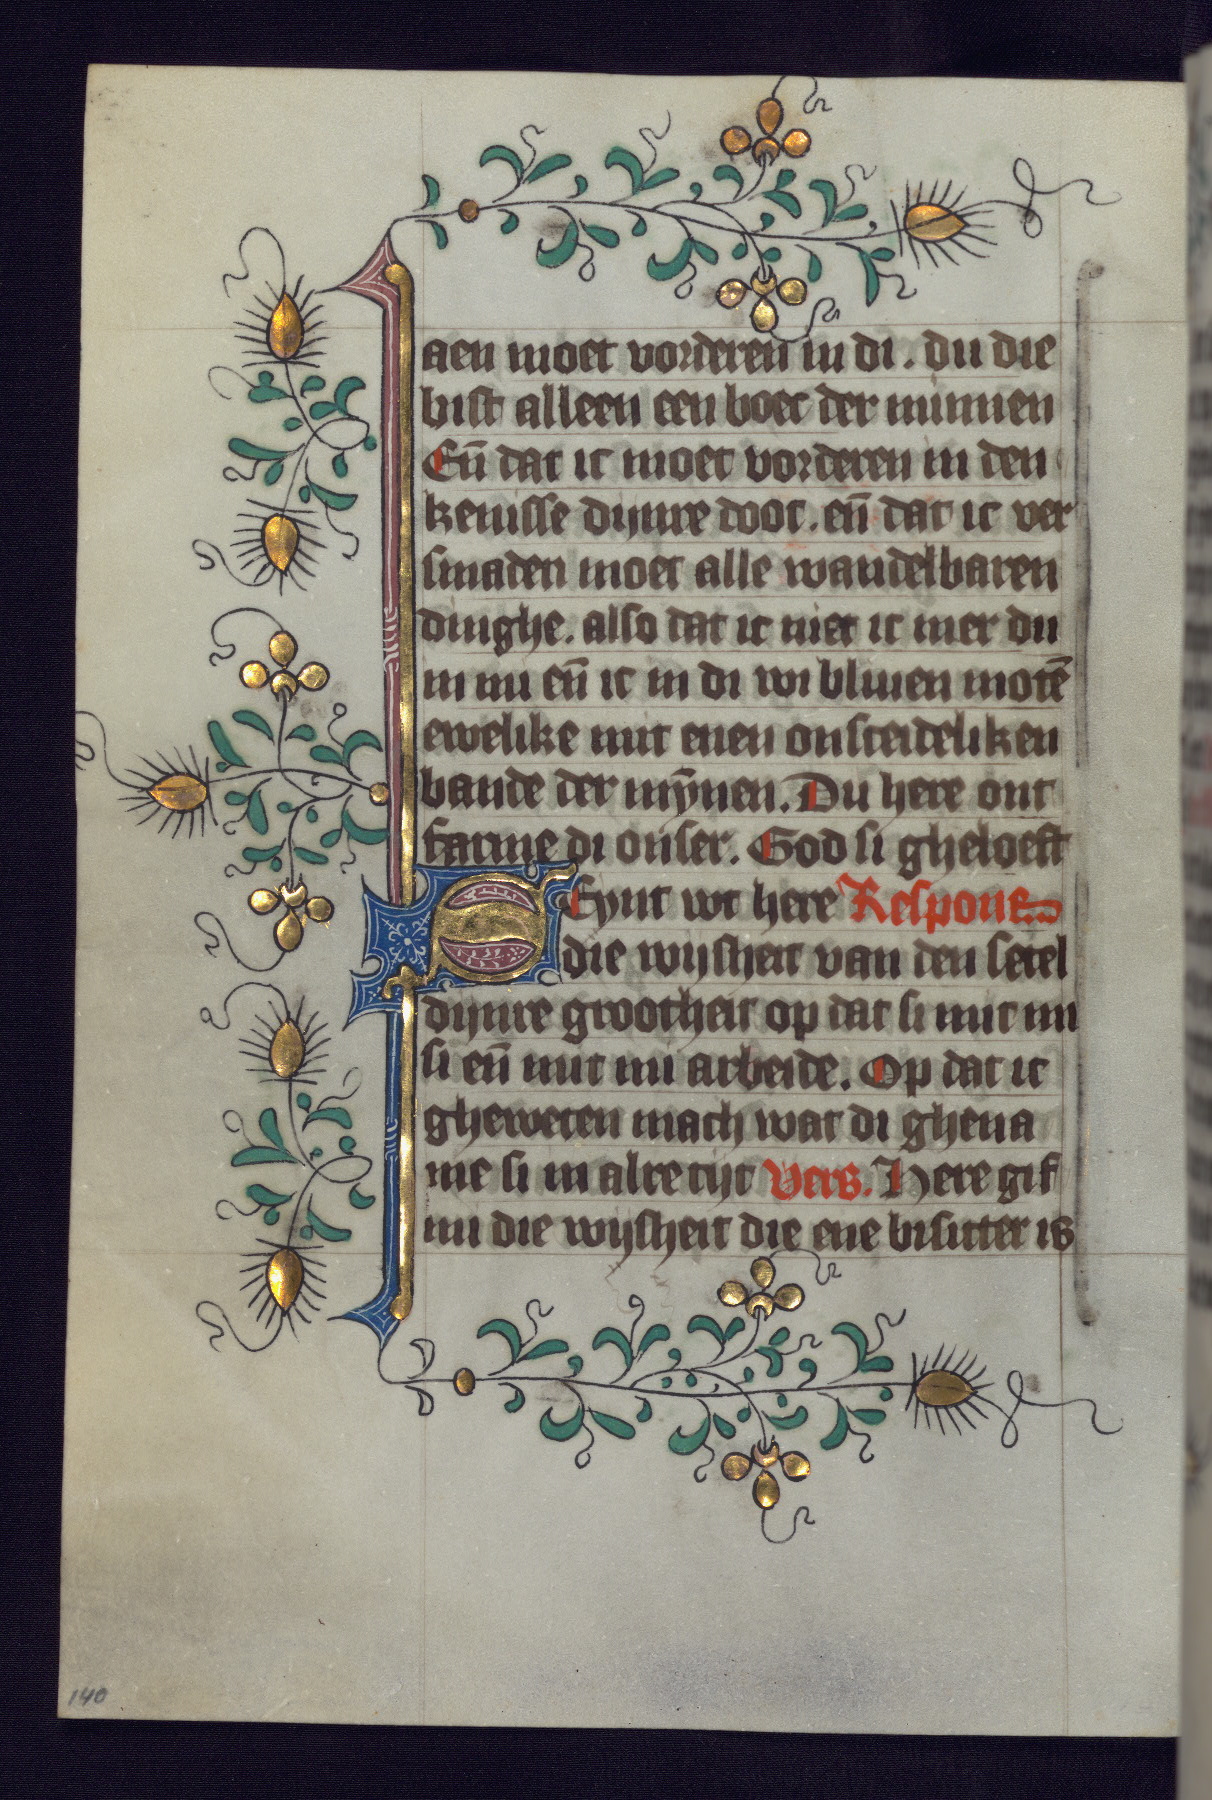 aen moet vorderen in di. du die
bist alleen een boet der minnen
Eñ dat ic moet vorderen in den
kenisse dijnre doot. eñ dat ic ver
smaden moet alle wandelbaren
dinghe. also dat ic niet ic mer du
in mi eñ ic in di wi bliuen motē
ewelike mit enen onsceideliken
bande der mȳnen. Du here ont
farme di onser. God si gheloeft
SEynt wt here Respons
die wijsheit van den setel
dijnre grootheit op dat si mit mi
si eñ mit mi arbeide. Op dat ic
gheweten mach wat di ghena
me si in alre tijt Vers. Here gif
mi die wijsheit die ene bisitter is
140